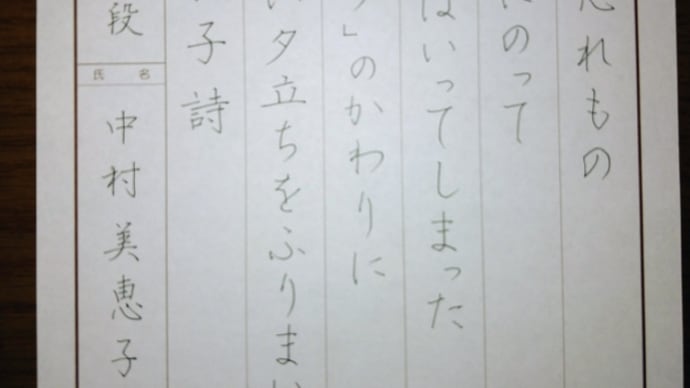 忘れもの
にのって
はいってしまった
」のかわりに
い夕立ちをふりまい
子 詩
段 氏名 中村美恵子